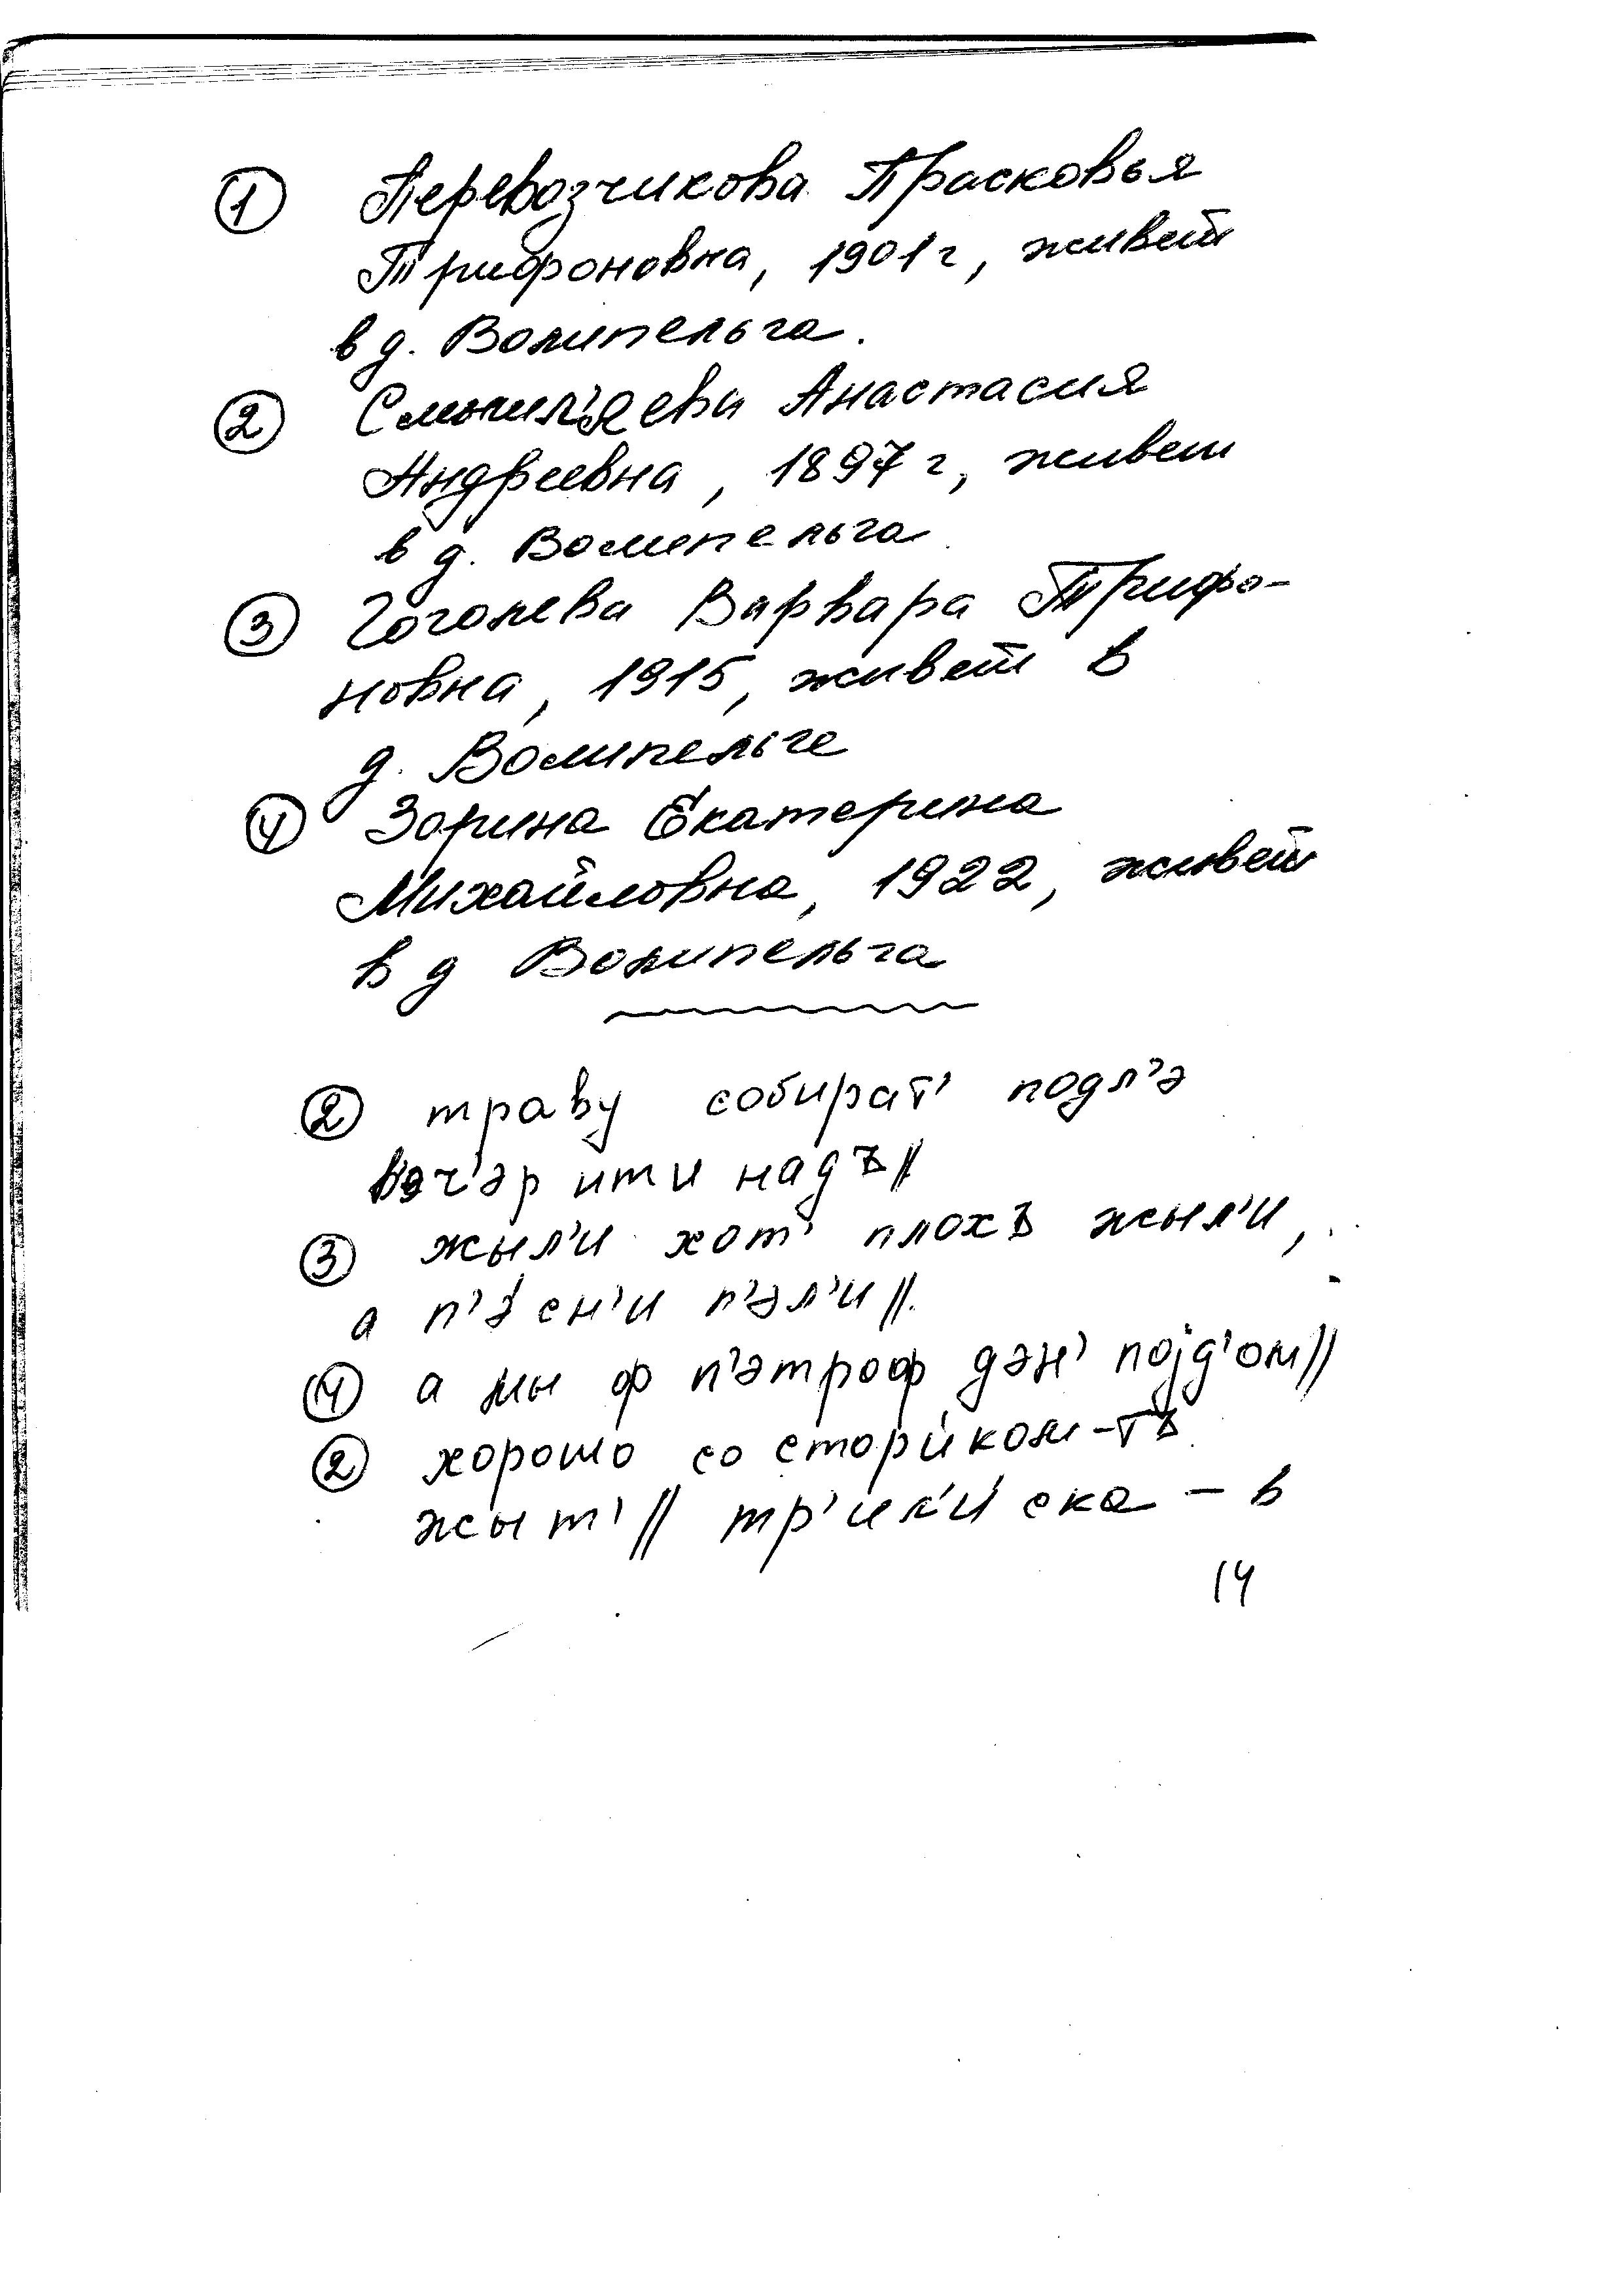 ① Перевозчикова Прасковья
Трифоновна, 1901 г, живет
в д. Волипельга.
② Анастасия
Андреевна, 1897 г, живет
в д. Волипельга
③ Гоголева Варвара Трифо-
новна, 1915, живет в
д. Волипельге
④ Зорина Екатерина
Михайловна, 1922, живет
в д Волипельга
② траву собират' подл'э
вэч'эр ити надъ//
③ жыл'и хот' плохъ жыл'и,
а п'э́сн'и п'эл'и//.
④ а мы ф п'этроф дэн' поjд'ом//
② хорошо со стори́ком-тъ
жыт'// тр'ил'и́ска - в
14